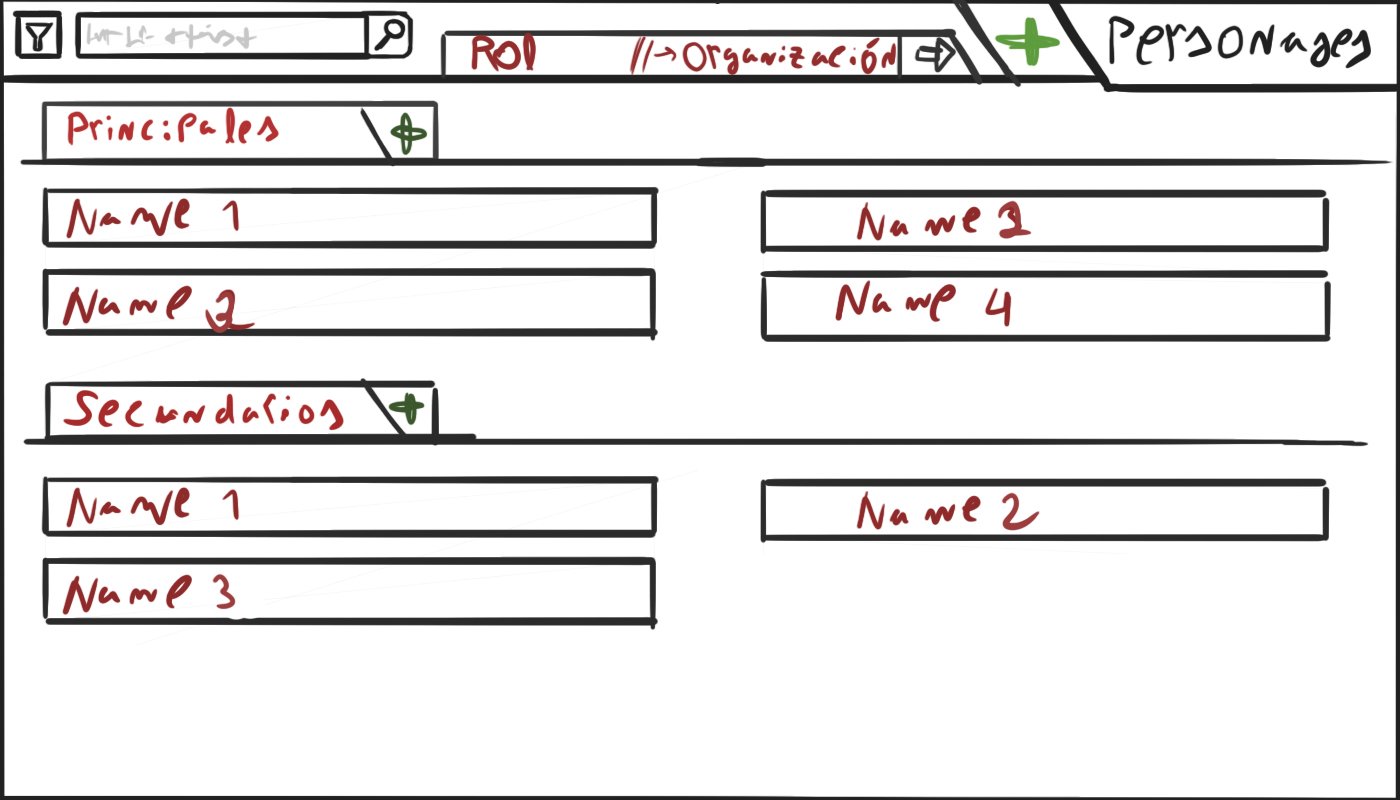 ROl //→Organización Personages
Principales
Name 1
Name 2
Name 4
Secundarios
Name 1 Name 2
Name 3